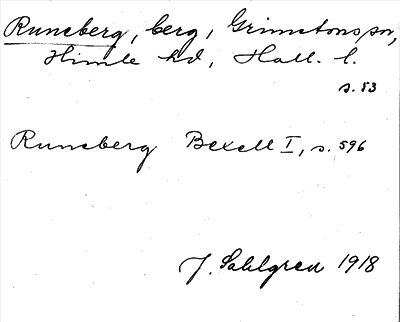 Runeberg, berg, Grimetons sn,
Himle hd, Hall. l.
s. 53
Runeberg Bexell I, s. 596
J. Sahlgren 1918